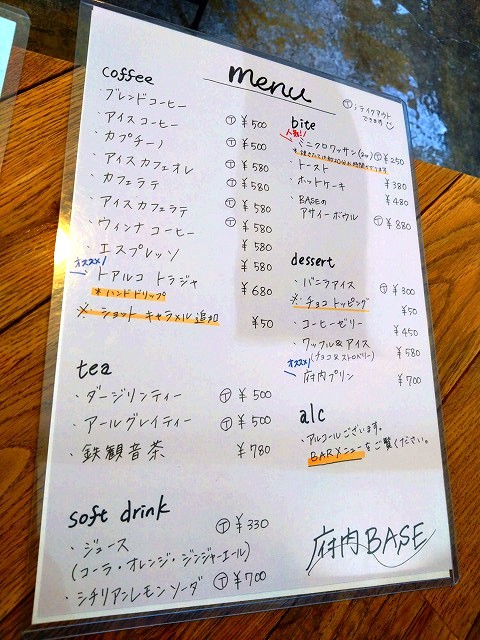 menu
Ⓣ:テイクアウト
できます
coffee
・ブレンドコーヒー Ⓣ ¥500
・アイスコーヒー Ⓣ ¥500
・カプチーノ Ⓣ ¥580
・アイスカフェオレ Ⓣ ¥580
・カフェラテ Ⓣ ¥580
・アイスカフェラテ Ⓣ ¥580
・ウィンナコーヒー ¥580
・エスプレッソ ¥580
オススメ!
・トアルコ トラジャ ¥680
※ハンドドリップ
※・ショット キャラメル追加 ¥50
tea
・ダージリンティー Ⓣ ¥500
・アールグレイティー Ⓣ ¥500
・鉄観音茶 ¥780
soft drink
・ジュース Ⓣ ¥330
(コーラ・オレンジ・ジンジャーエール)
・シチリアンレモンソーダ Ⓣ ¥700
bite
人気!!
・ミニクロワッサン(2ヶ) Ⓣ ¥250
・トースト ¥380
・ホットケーキ ¥480
・BASEの
アサイーボウル Ⓣ ¥880
dessert
・バニラアイス Ⓣ ¥300
※チョコトッピング ¥50
・コーヒーゼリー ¥450
・ワッフル&アイス ¥580
(チョコ&ストロベリー)
オススメ!
・府内プリン ¥700
alc
・アルコールございます。
BARメニューをご覧ください。
府内BASE